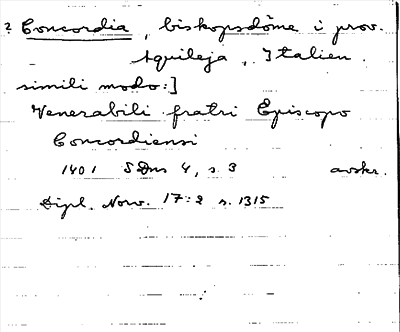 2 Concordia, biskopsdöme i prov.
Aquileja, Italien.
simili modo:]
Venerabili fratri Episcopo
Concordiensi
1401 SDns 4, s. 3 avskr.
Dipl. Norv. 17:2 s. 1315